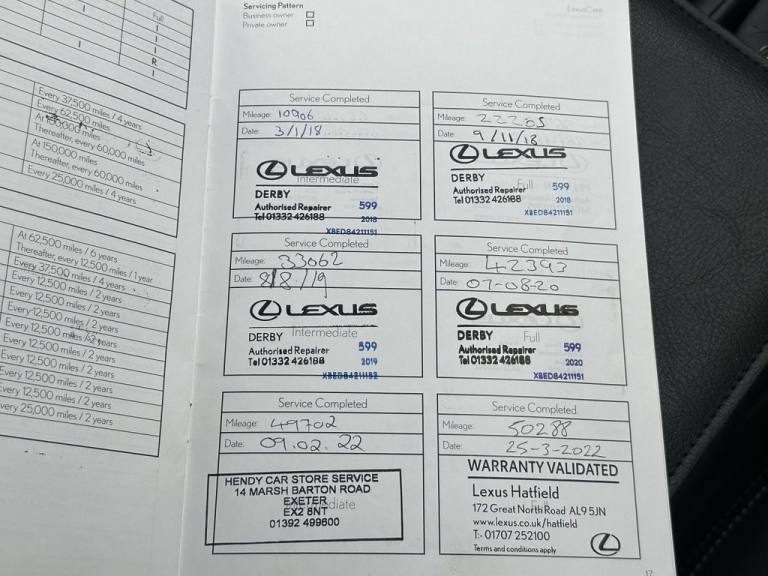 Full
I
I
I
R
I
I
Every 37,500 miles / 4 years
Every 62,500 miles
Thereafter, every 60,000 miles
At 150,000 miles
Thereafter, every 60,000 miles
Every 25,000 miles / 4 years
At 62,500 miles / 6 years
Thereafter, every 12,500 miles / 1 year
Every 37,500 miles / 4 years
Every 12,500 miles / 2 years
Every 12,500 miles / 2 years
Every 12,500 miles / 2 years
Every 12,500 miles / 2 years
Every 12,500 miles / 2 years
Every 12,500 miles / 2 years
Every 12,500 miles / 2 years
Every 25,000 miles / 2 years
Servicing Pattern
Business owner
Private owner
LexusCare
Service Completed
Mileage: 10906
Date: 3/1/18
LEXUS
Intermediate
DERBY
Authorised Repairer 599
Tel 01332 426188 2018
XBED84211151
Service Completed
Mileage: 22205
Date: 9/11/18
LEXUS
Full
DERBY
Authorised Repairer 599
Tel 01332 426188 2018
XBED84211151
Service Completed
Mileage: 33062
Date: 8/8/19
LEXUS
Intermediate
DERBY
Authorised Repairer 599
Tel 01332 426188 2019
XBED84211152
Service Completed
Mileage: 42393
Date: 07-08-20
LEXUS
Full
DERBY
Authorised Repairer 599
Tel 01332 426188 2020
XBED84211151
Service Completed
Mileage: 49702
Date: 09.02.22
HENDY CAR STORE SERVICE
14 MARSH BARTON ROAD
EXETER
EX2 8NT
01392 499600
Service Completed
Mileage: 50288
Date: 25-3-2022
WARRANTY VALIDATED
Lexus Hatfield
172 Great North Road AL9 5JN
www.lexus.co.uk/hatfield
T:- 01707 252100
Terms and conditions apply
17